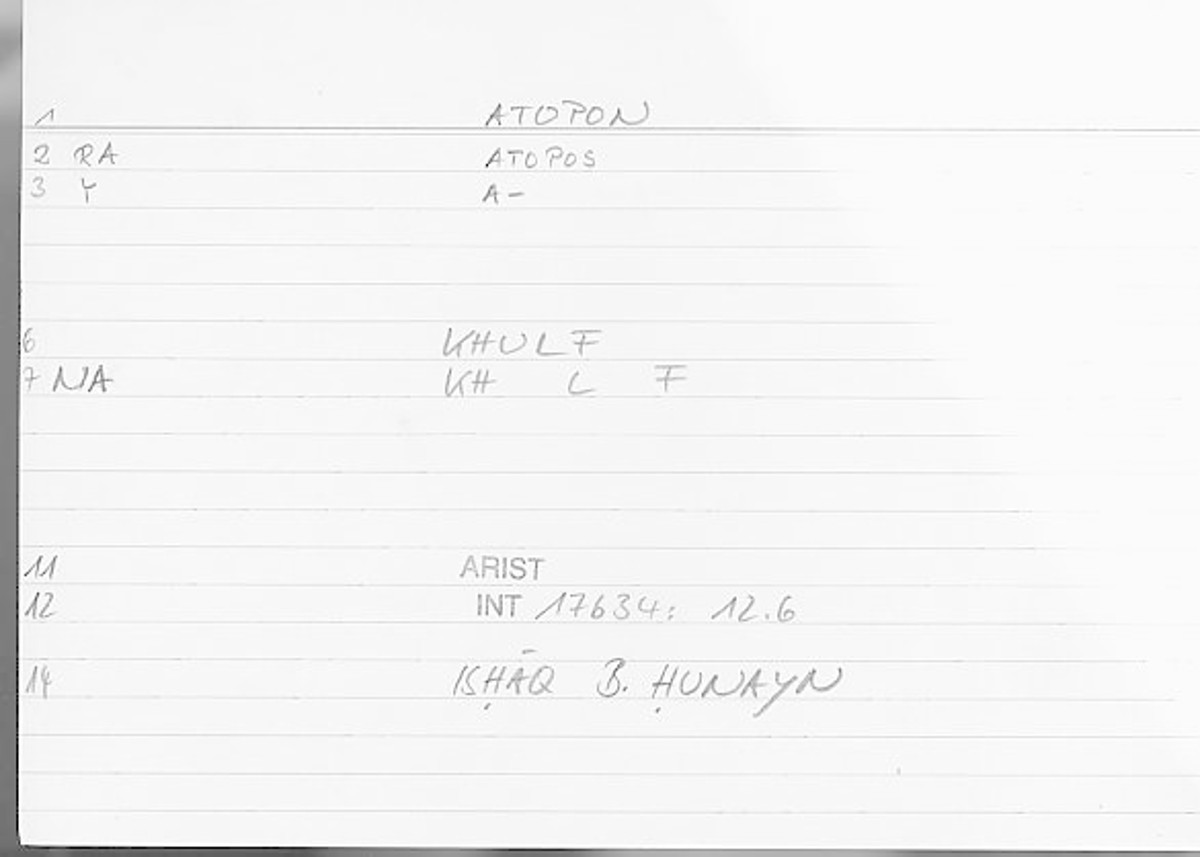 1 ATOPON
2 RA ATOPOS
3 Y A-
6 KHULF
7 NA KH L F
11 ARIST
12 INT 17634: 12.6
14 ISḤĀQ B. ḤUNAYN